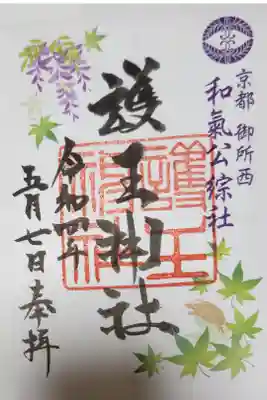 京都 御所西
和氣公綜社
護王神社
令和四年
五月七日奉拜
護王神社